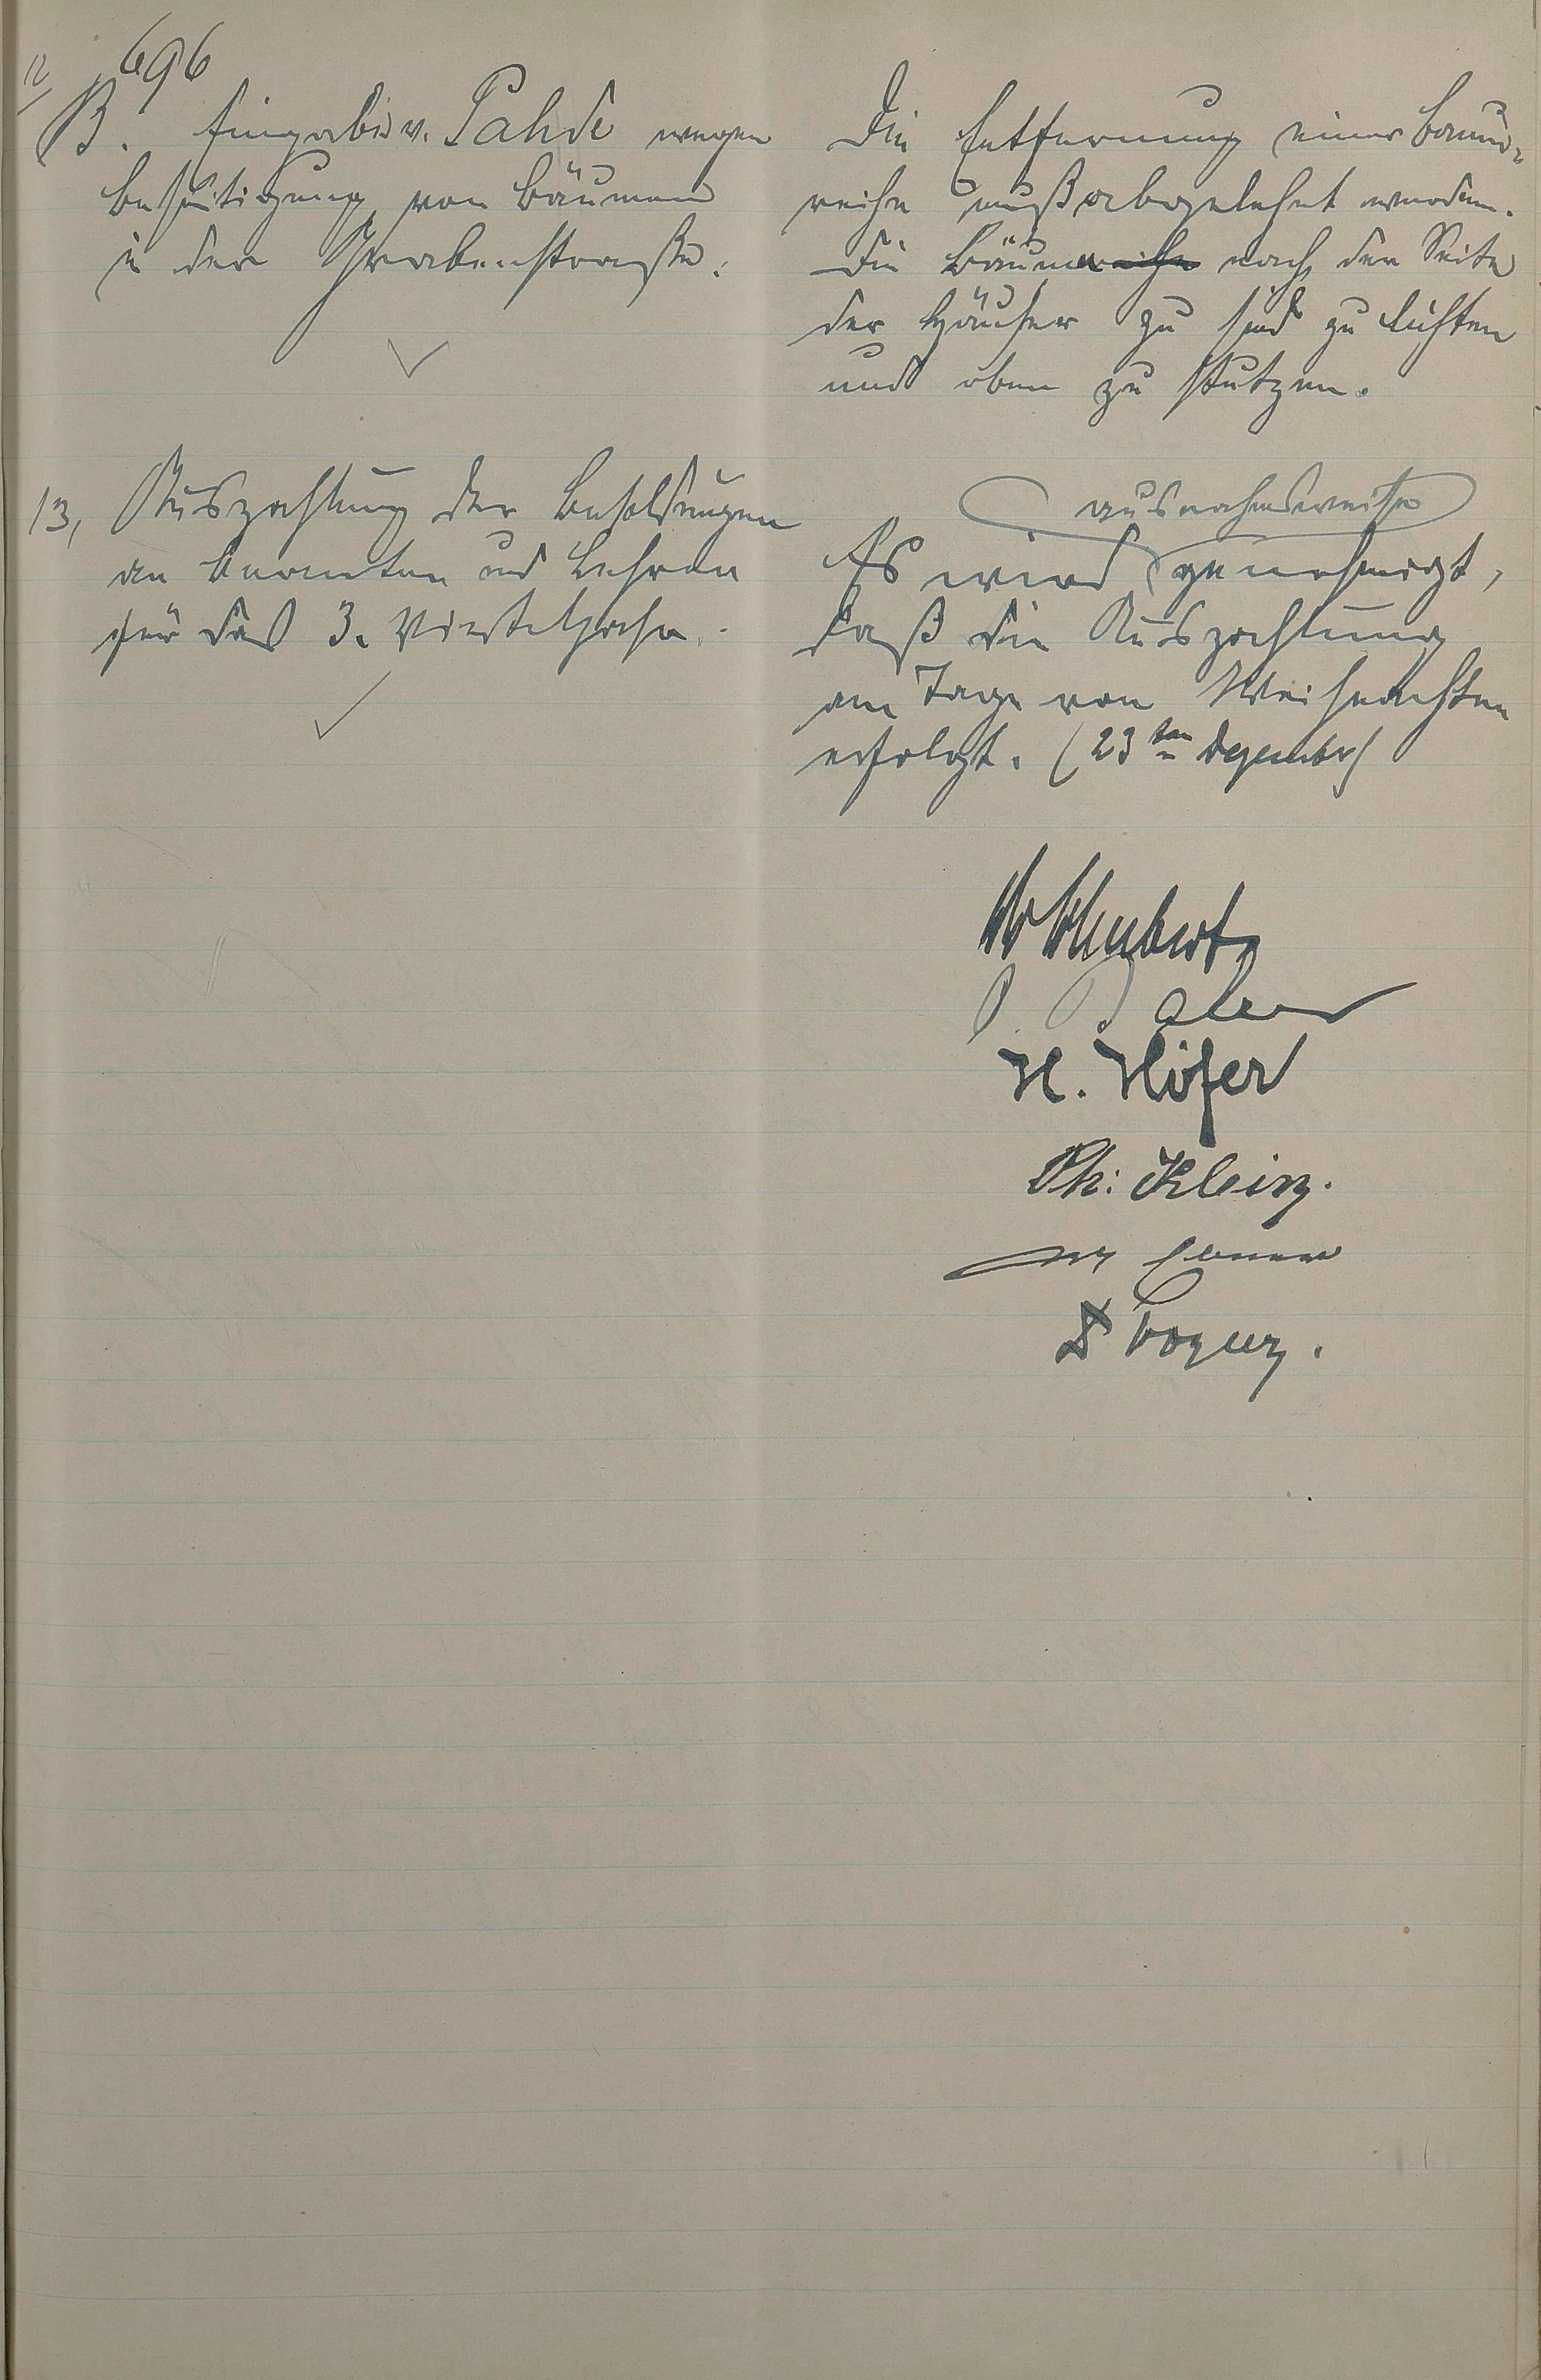 696
12/
B. Eingabe v. Pahde wegen
Beseitigung von Bäumen
in der Grabenstraße.
Die Entfernung einer Baum-
reihe muß abgelehnt werden.
Die Bäume nach der Seite
der Häuser zu sind zu lichten
und oben zu stutzen.
13, Auszahlung der Besoldungen
an Beamten und Lehrer
für das 3. Vierteljahr.
ausnahmsweise
Es wird genehmigt,
daß die Auszahlung
am Tage von Weihnachten
erfolgt. (23ten Dezember)
Schubert
H. Höfer
Ph: Klein.